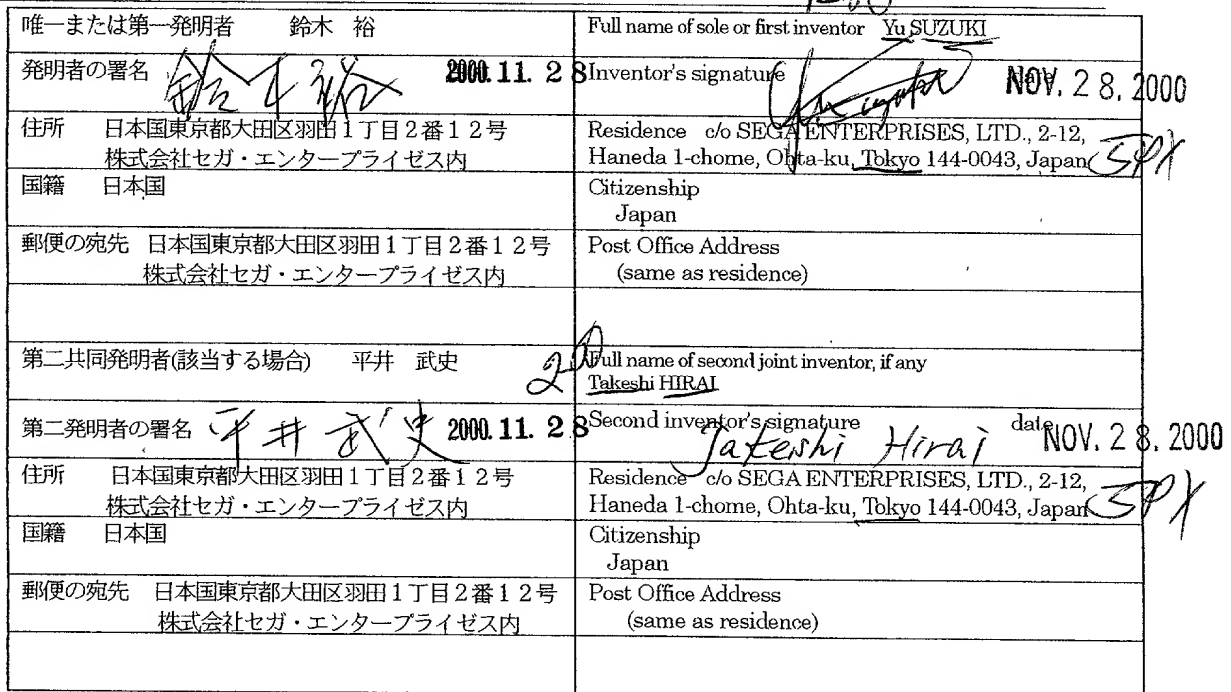 唯一または第一発明者 鈴木 裕
Full name of sole or first inventor Yu SUZUKI
発明者の署名 鈴木裕 2000.11.28
Inventor's signature NOV. 28, 2000
住所 日本国東京都大田区羽田1丁目2番12号
株式会社セガ・エンタープライゼス内
Residence c/o SEGA ENTERPRISES, LTD., 2-12,
Haneda 1-chome, Ohta-ku, Tokyo 144-0043, Japan JPX
国籍 日本国
Citizenship
Japan
郵便の宛先 日本国東京都大田区羽田1丁目2番12号
株式会社セガ・エンタープライゼス内
Post Office Address
(same as residence)
第二共同発明者(該当する場合) 平井 武史
Full name of second joint inventor, if any
Takeshi HIRAI
第二発明者の署名 平井武史 2000.11.28
Second inventor's signature Takeshi Hirai date NOV. 28, 2000
住所 日本国東京都大田区羽田1丁目2番12号
株式会社セガ・エンタープライゼス内
Residence c/o SEGA ENTERPRISES, LTD., 2-12,
Haneda 1-chome, Ohta-ku, Tokyo 144-0043, Japan JPX
国籍 日本国
Citizenship
Japan
郵便の宛先 日本国東京都大田区羽田1丁目2番12号
株式会社セガ・エンタープライゼス内
Post Office Address
(same as residence)